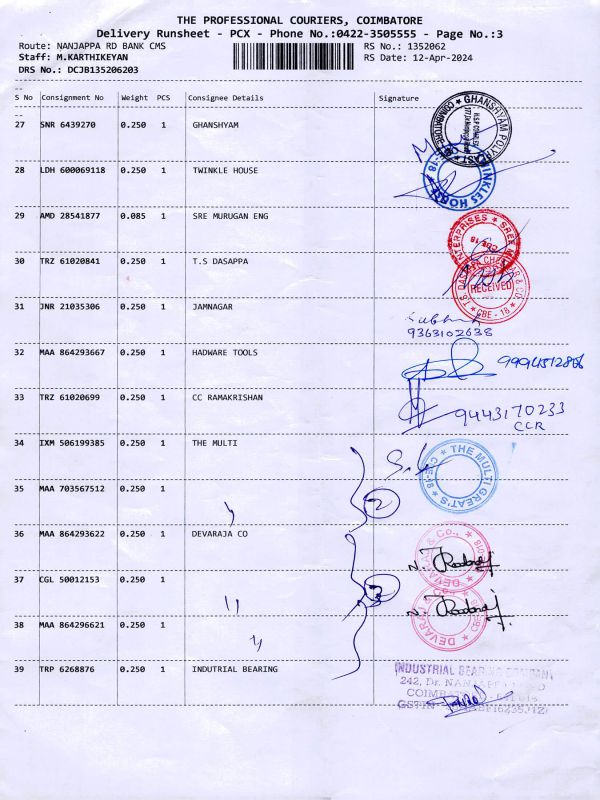 THE PROFESSIONAL COURIERS, COIMBATORE
Delivery Runsheet - PCX - Phone No.:0422-3505555 - Page No.:3
Route: NANJAPPA RD BANK CMS RS No.: 1352062
Staff: M.KARTHIKEYAN RS Date: 12-Apr-2024
DRS No.: DCJB135206203
S No Consignment No Weight PCS Consignee Details Signature
27 SNR 6439270 0.250 1 GHANSHYAM
28 LDH 600069118 0.250 1 TWINKLE HOUSE
29 AMD 28541877 0.085 1 SRE MURUGAN ENG
30 TRZ 61020841 0.250 1 T.S DASAPPA
RECEIVED
CBE - 18
31 JNR 21035306 0.250 1 JAMNAGAR
9363102638
32 MAA 864293667 0.250 1 HADWARE TOOLS
33 TRZ 61020699 0.250 1 CC RAMAKRISHAN
9443170233
CCR
34 IXM 506199385 0.250 1 THE MULTI
THE MULTI GREAT'S
35 MAA 703567512 0.250 1
2
36 MAA 864293622 0.250 1 DEVARAJA CO
37 CGL 50012153 0.250 1
3
38 MAA 864296621 0.250 1
39 TRP 6268876 0.250 1 INDUTRIAL BEARING
INDUSTRIAL BEARING COMPANY
242, Dr. NANJAPPA ROAD